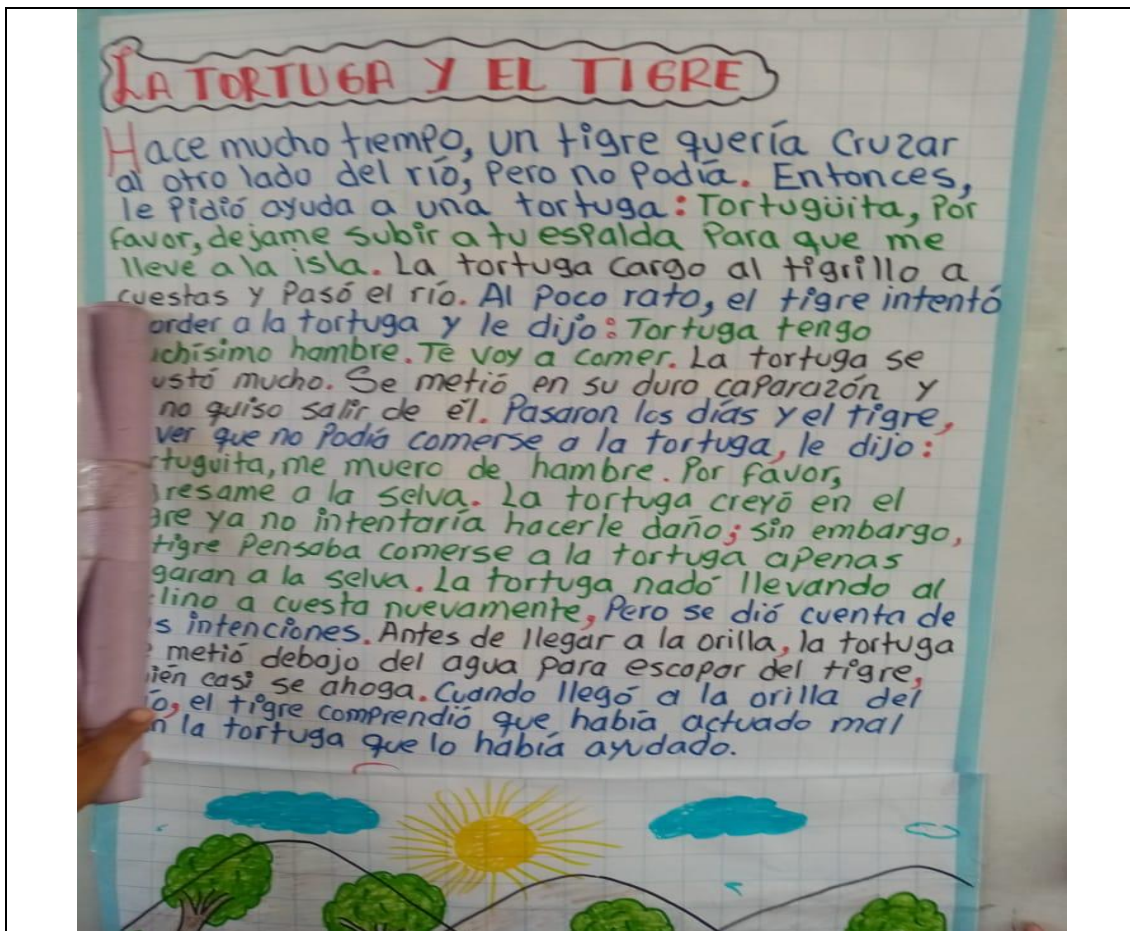 LA TORTUGA Y EL TIGRE
Hace mucho tiempo, un tigre quería cruzar
al otro lado del río, pero no podía. Entonces,
le pidió ayuda a una tortuga: Tortugüita, por
favor, dejame subir a tu espalda para que me
lleve a la isla. La tortuga cargo al tigrillo a
cuestas y pasó el río. Al poco rato, el tigre intentó
order a la tortuga y le dijo: Tortuga tengo
chísimo hambre. Te voy a comer. La tortuga se
ustó mucho. Se metió en su duro caparazón y
no quiso salir de él. Pasaron los días y el tigre,
ver que no podía comerse a la tortuga, le dijo:
tuguita, me muero de hambre. Por favor,
resame a la selva. La tortuga creyó en el
gre ya no intentaría hacerle daño; sin embargo,
tigre pensaba comerse a la tortuga apenas
garan a la selva. La tortuga nadó llevando al
lino a cuesta nuevamente, pero se dió cuenta de
s intenciones. Antes de llegar a la orilla, la tortuga
metió debajo del agua para escapar del tigre,
ién casi se ahoga. Cuando llegó a la orilla del
o, el tigre comprendió que había actuado mal
n la tortuga que lo había ayudado.